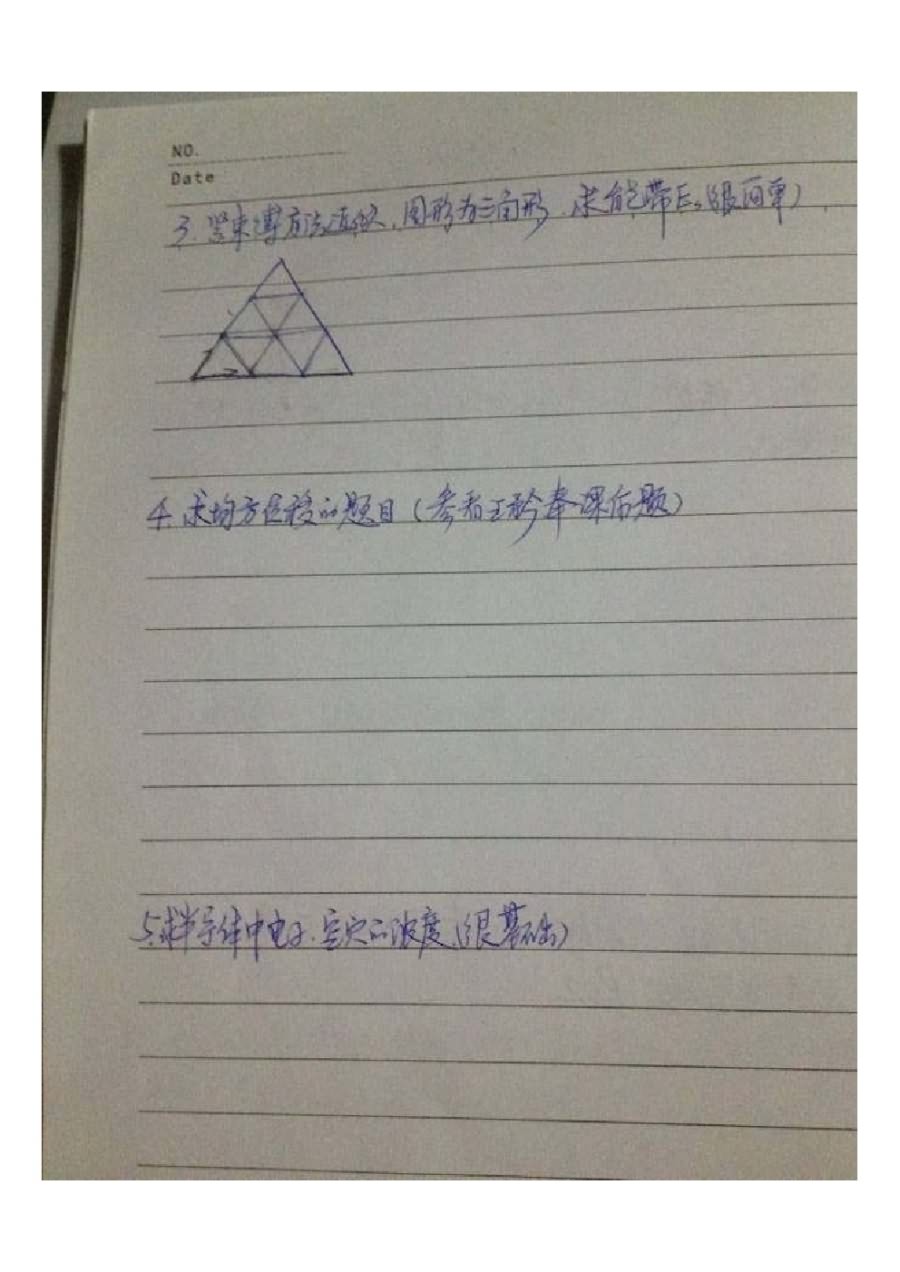 NO.
Date
3. 紧束缚方法近似,图形为三角形,求能带Es(很简单)
4. 求均方位移的题目(参看王矜奉课后题)
5. 求半导体中电子、空穴的浓度(很基础)